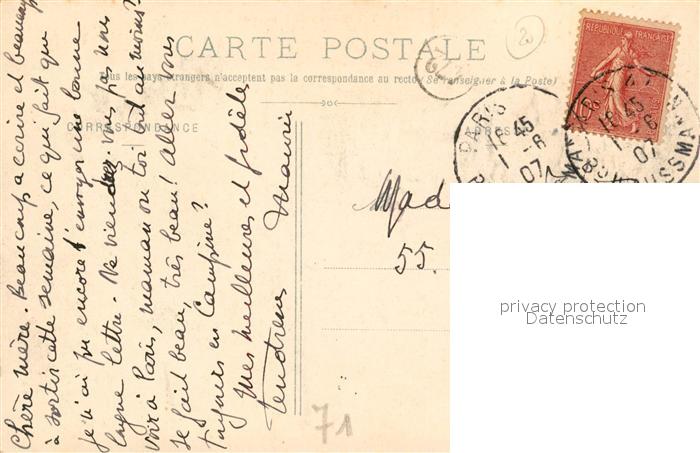 CARTE POSTALE
Tous les pays étrangers n'acceptent pas la correspondance au recto (Se renseigner à la Poste)
CORRESPONDANCE
Chère mère. Beaucoup a écrire et beaucoup
à sortir cette semaine, ce qui fait que
je n'ai pu encore t'envoyer une bonne
longue lettre. Ne viendrez vous pas nous
voir à Paris, maman ou toi tout au moins?
Il fait beau, très beau! Allez vous
toujours en Campine?
Mes meilleures et fidèles
tendresses
Maurice
REPUBLIQUE FRANÇAISE
PARIS
16 45
1 - 6
07
PARIS
16 45
1 - 6
07
HAUSSMANN
Mad
55.
71
privacy protection
Datenschutz